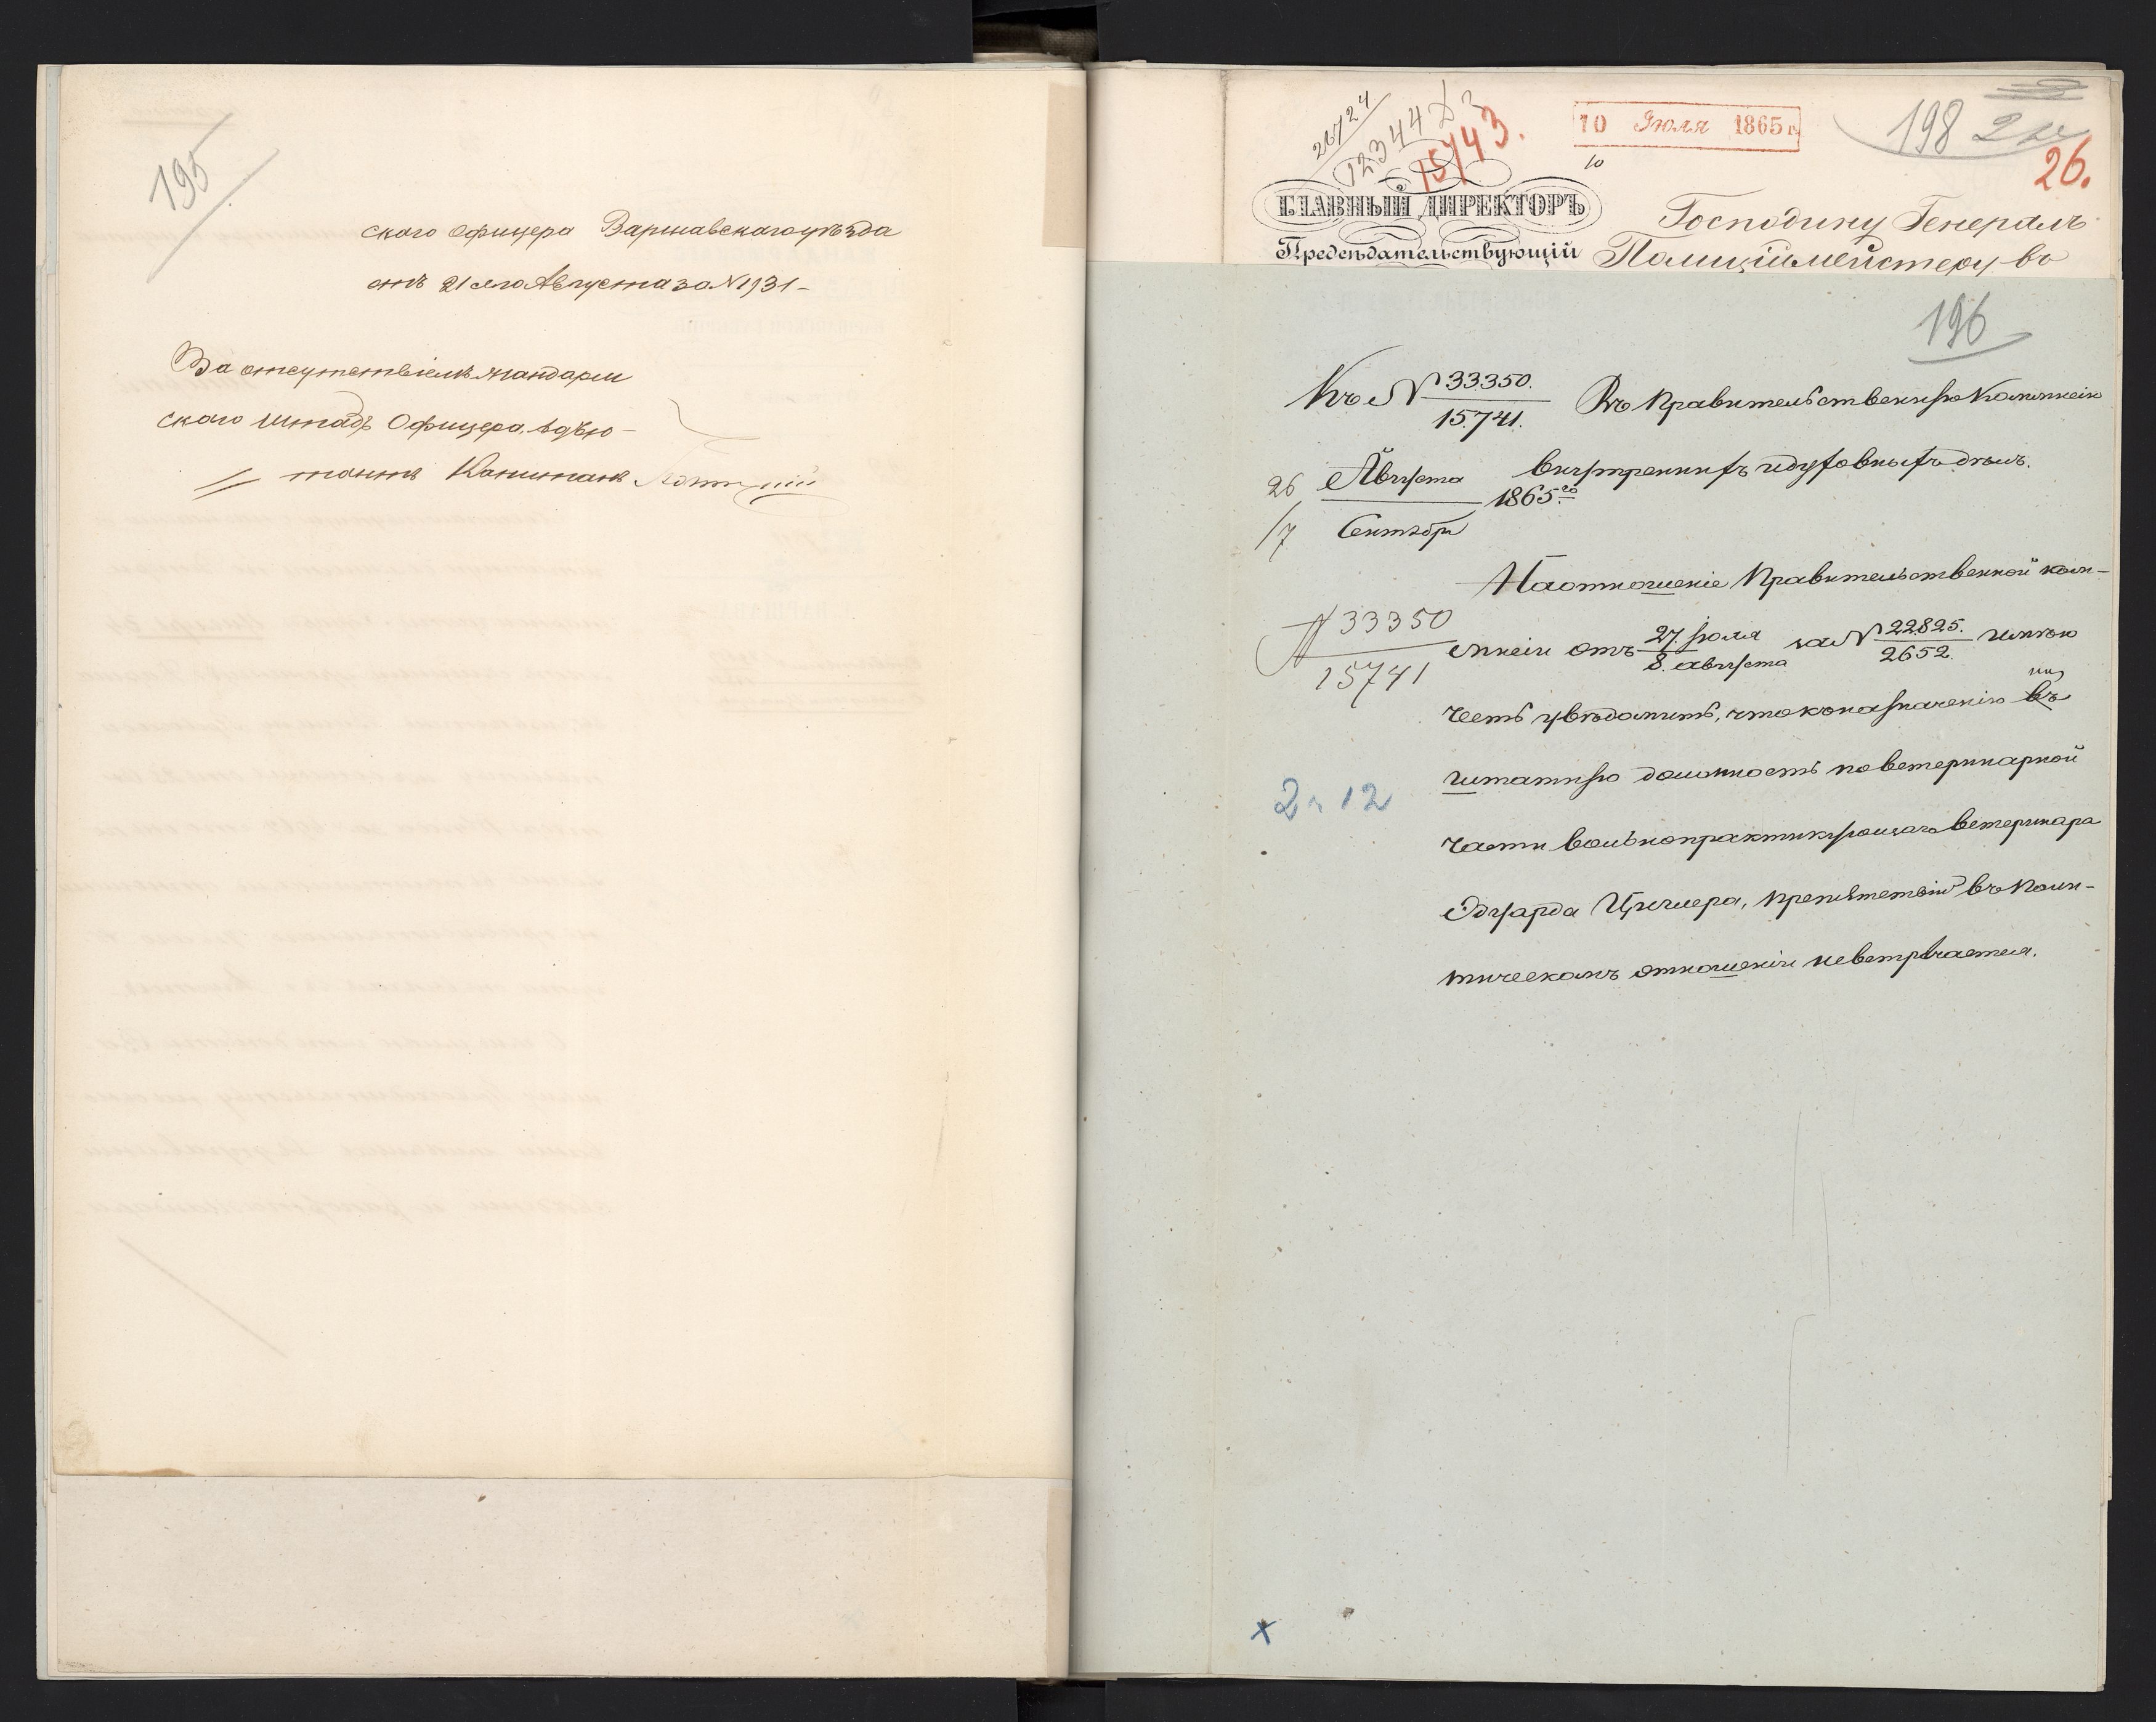 195
ского офицера Варшавскаго уѣзда
отъ 21 сего Августа за № 1931 –
За отсутствіемъ жандарм
скаго Штабъ Офицера, адъю –
тантъ Капитанъ
26724
12344
15743.
10 Июля 1865 г.
10
198
26.
ГЛАВНЫЙ ДИРЕКТОРЪ
Предсѣдательствующій
Господину Генералъ
Полиціймейстеру во
196
Къ № 33350.
15741.
Въ Правительственную Коммисію
внутреннихъ и духовныхъ дѣлъ.
26 Августа
1865го
/7 Сентябр
На отношеніе Правительственной ком–
№ 33350
15741
мисіи отъ 27. юля
8. августа
за № 22825.
2652.
имѣю
честь увѣдомить, что къ назначенію въ
на
штатную должность по ветеринарной
2 12
части вольнопрактикующаго ветеринара
Эдуарда препятствій въ поли–
тическомъ отношеніи невстрѣчается.
x